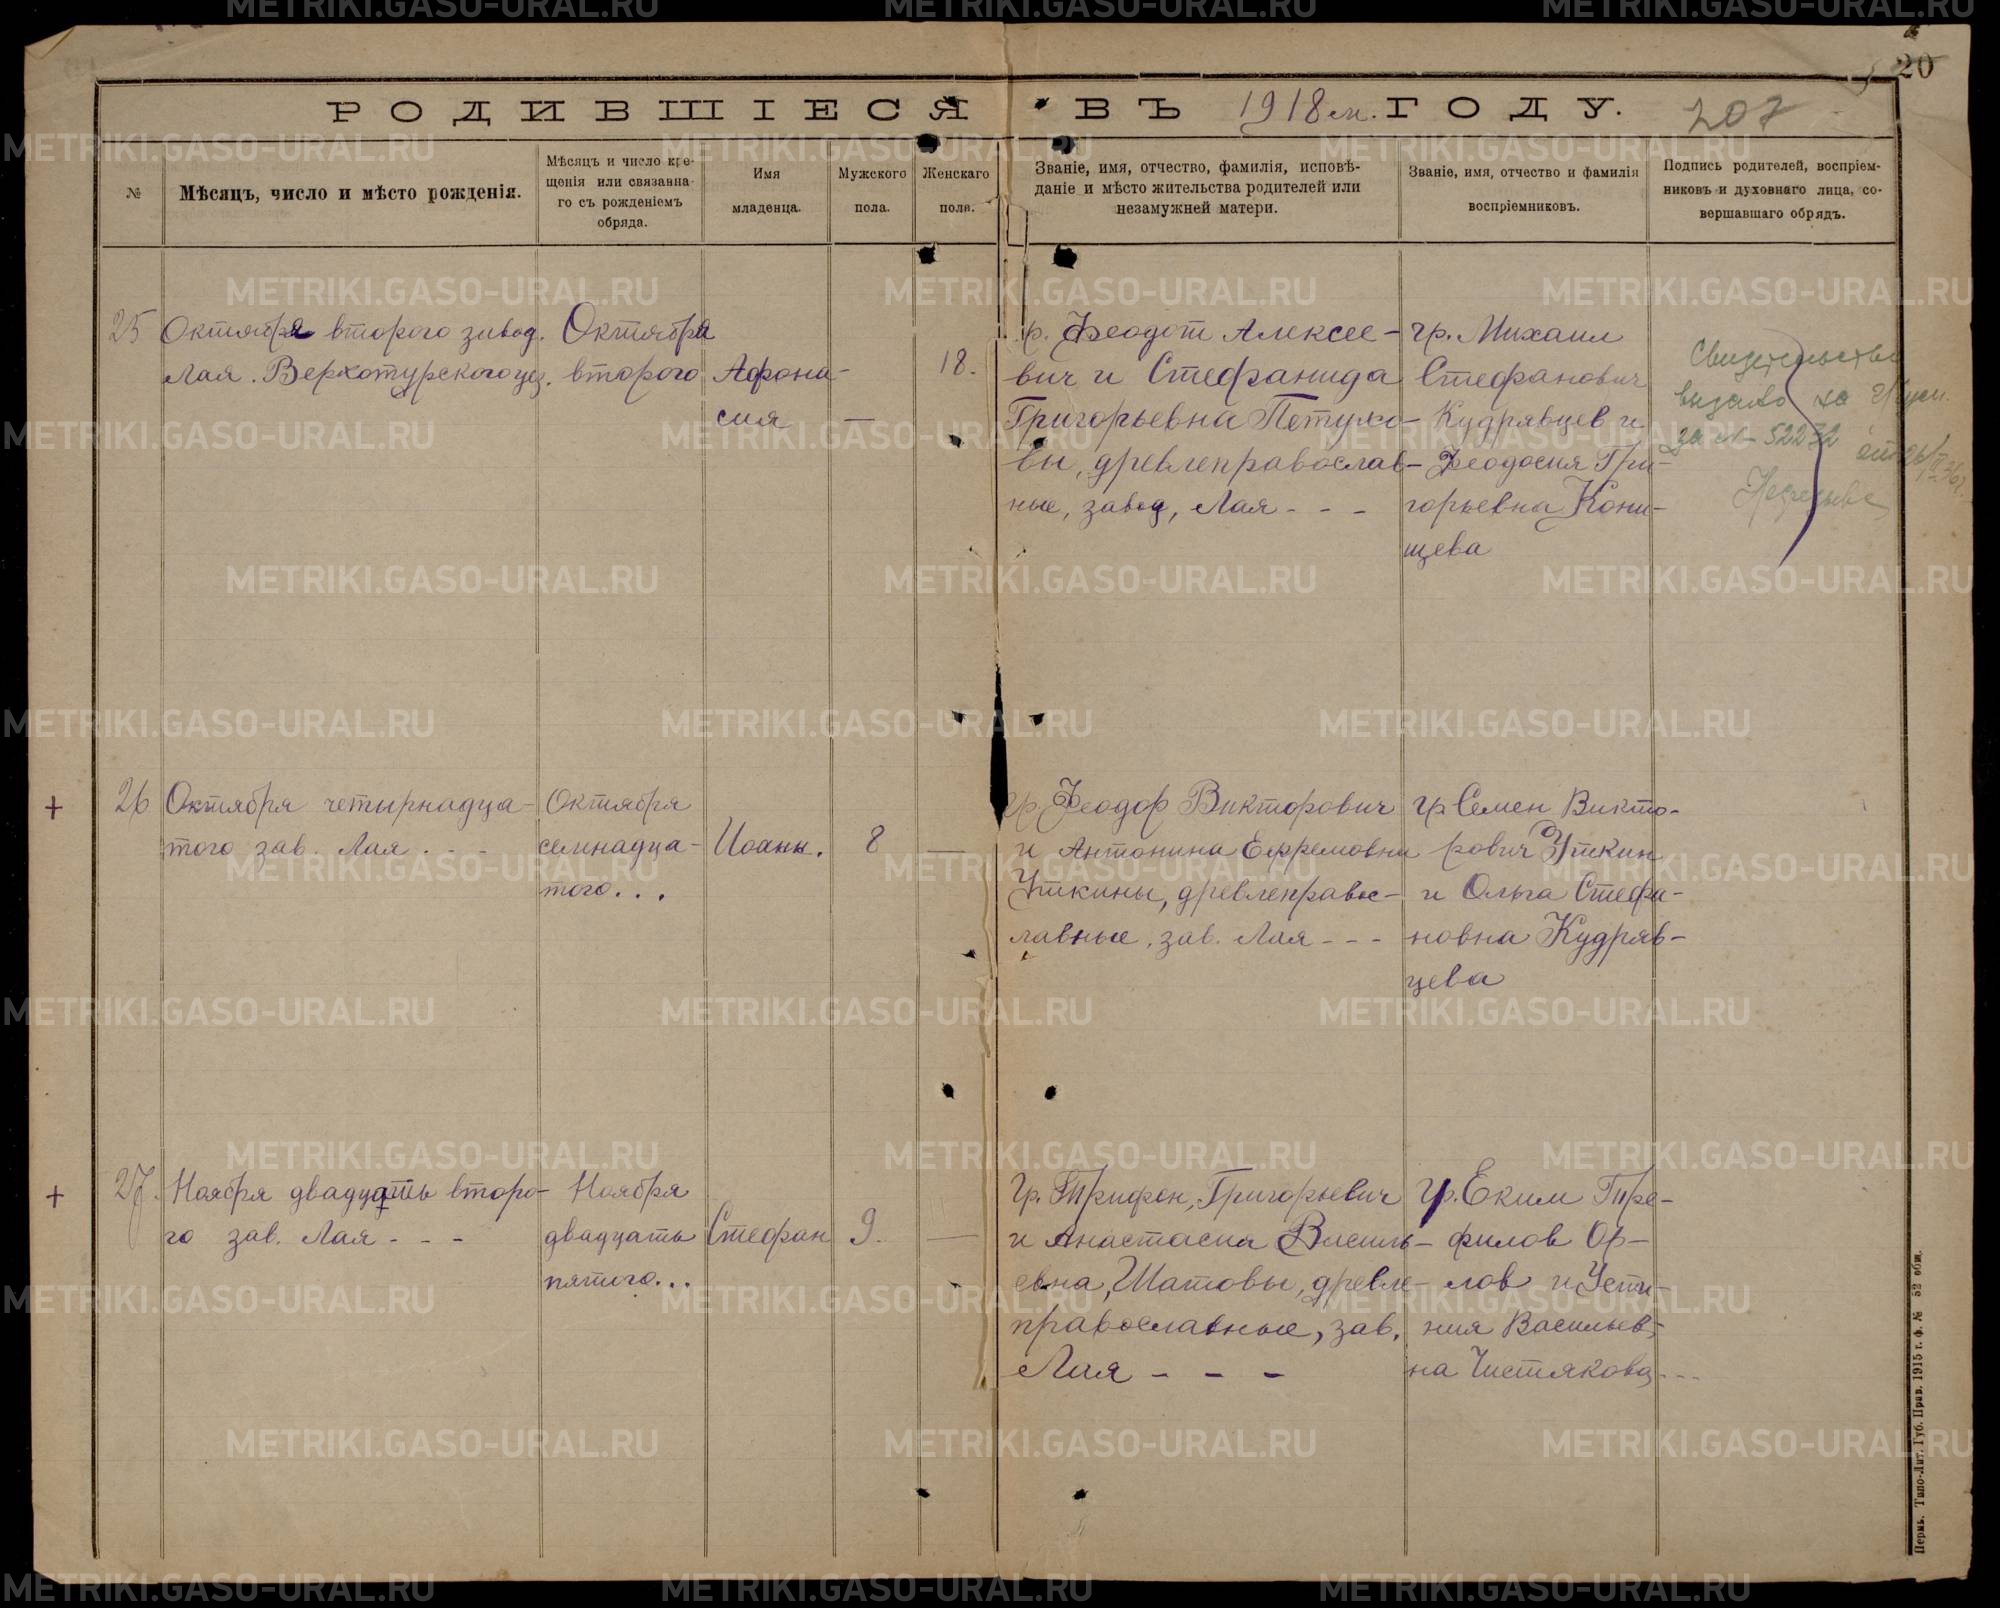 20
РОДИВШІЕСЯ ВЪ 1918 м. ГОДУ.
207
№
Мѣсяцъ, число и мѣсто рожденія.
Мѣсяцъ и число кре-
щенія или связанна-
го съ рожденіемъ
обряда.
Имя
младенца.
Мужского
пола.
Женскаго
пола.
Званіе, имя, отчество, фамилія, исповѣ-
даніе и мѣсто жительства родителей или
незамужней матери.
Званіе, имя, отчество и фамилія
воспріемниковъ.
Подпись родителей, воспріем-
никовъ и духовнаго лица, со-
вершавшаго обрядъ.
25
Октября второго завод.
Лая. Верхотурского уез.
Октября
второго
Афона-
сия
—
18.
гр. Феодот Алексее-
вич и Стефанида
Григорьевна Петухо-
вы, древлеправослав-
ные, завод, Лая - - -
гр. Михаил
Стефанович
Кудрявцев и
Феодосия Гри-
горьевна Кони-
щева
Свидетельство
выдано
за № 52272
+
26
Октября четырнадца-
того зав. Лая . - -
Октября
семнадца-
того. . .
Иоанн.
8
—
гр. Феодор Викторович
и Антонина Ефремовна
Уткины, древлеправос-
лавные, зав. Лая - - -
гр Семен Викто-
рович Уткин
и Ольга Стефа-
новна Кудряв-
цева
+
27.
Ноября двадцать второ-
го зав. Лая - - -
Ноября
двадцать
пятого...
Стефан
9.
—
Гр. Трифон, Григорьевич
и Анастасия Василь-
евна, Шатовы, древле-
православные, зав.
Лая - - -
Гр. Еким Тре-
филов Ор-
лов и Усти-
ния Васильев-
на Чистякова - - -
Пермь. Типо-Лит. Губ. Прав. 1915 г. ф. № 52 обм.
METRIKI.GASO-URAL.RU